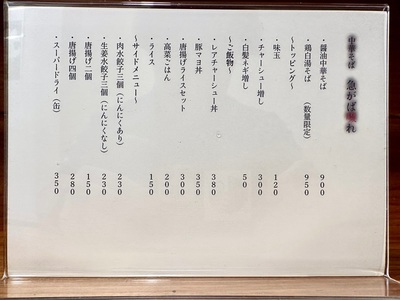 中華そば 急がば喰れ
・醤油中華そば 900
・鶏白湯そば (数量限定) 950
～トッピング～
・味玉 120
・チャーシュー増し 300
・白髪ネギ増し 50
～ご飯物～
・レアチャーシュー丼 380
・豚マヨ丼 350
・唐揚げライスセット 300
・高菜ごはん 200
・ライス 150
～サイドメニュー～
・肉水餃子三個 (にんにくあり) 230
・生姜水餃子三個 (にんにくなし) 230
・唐揚げ二個 150
・唐揚げ四個 280
・スーパードライ (缶) 350